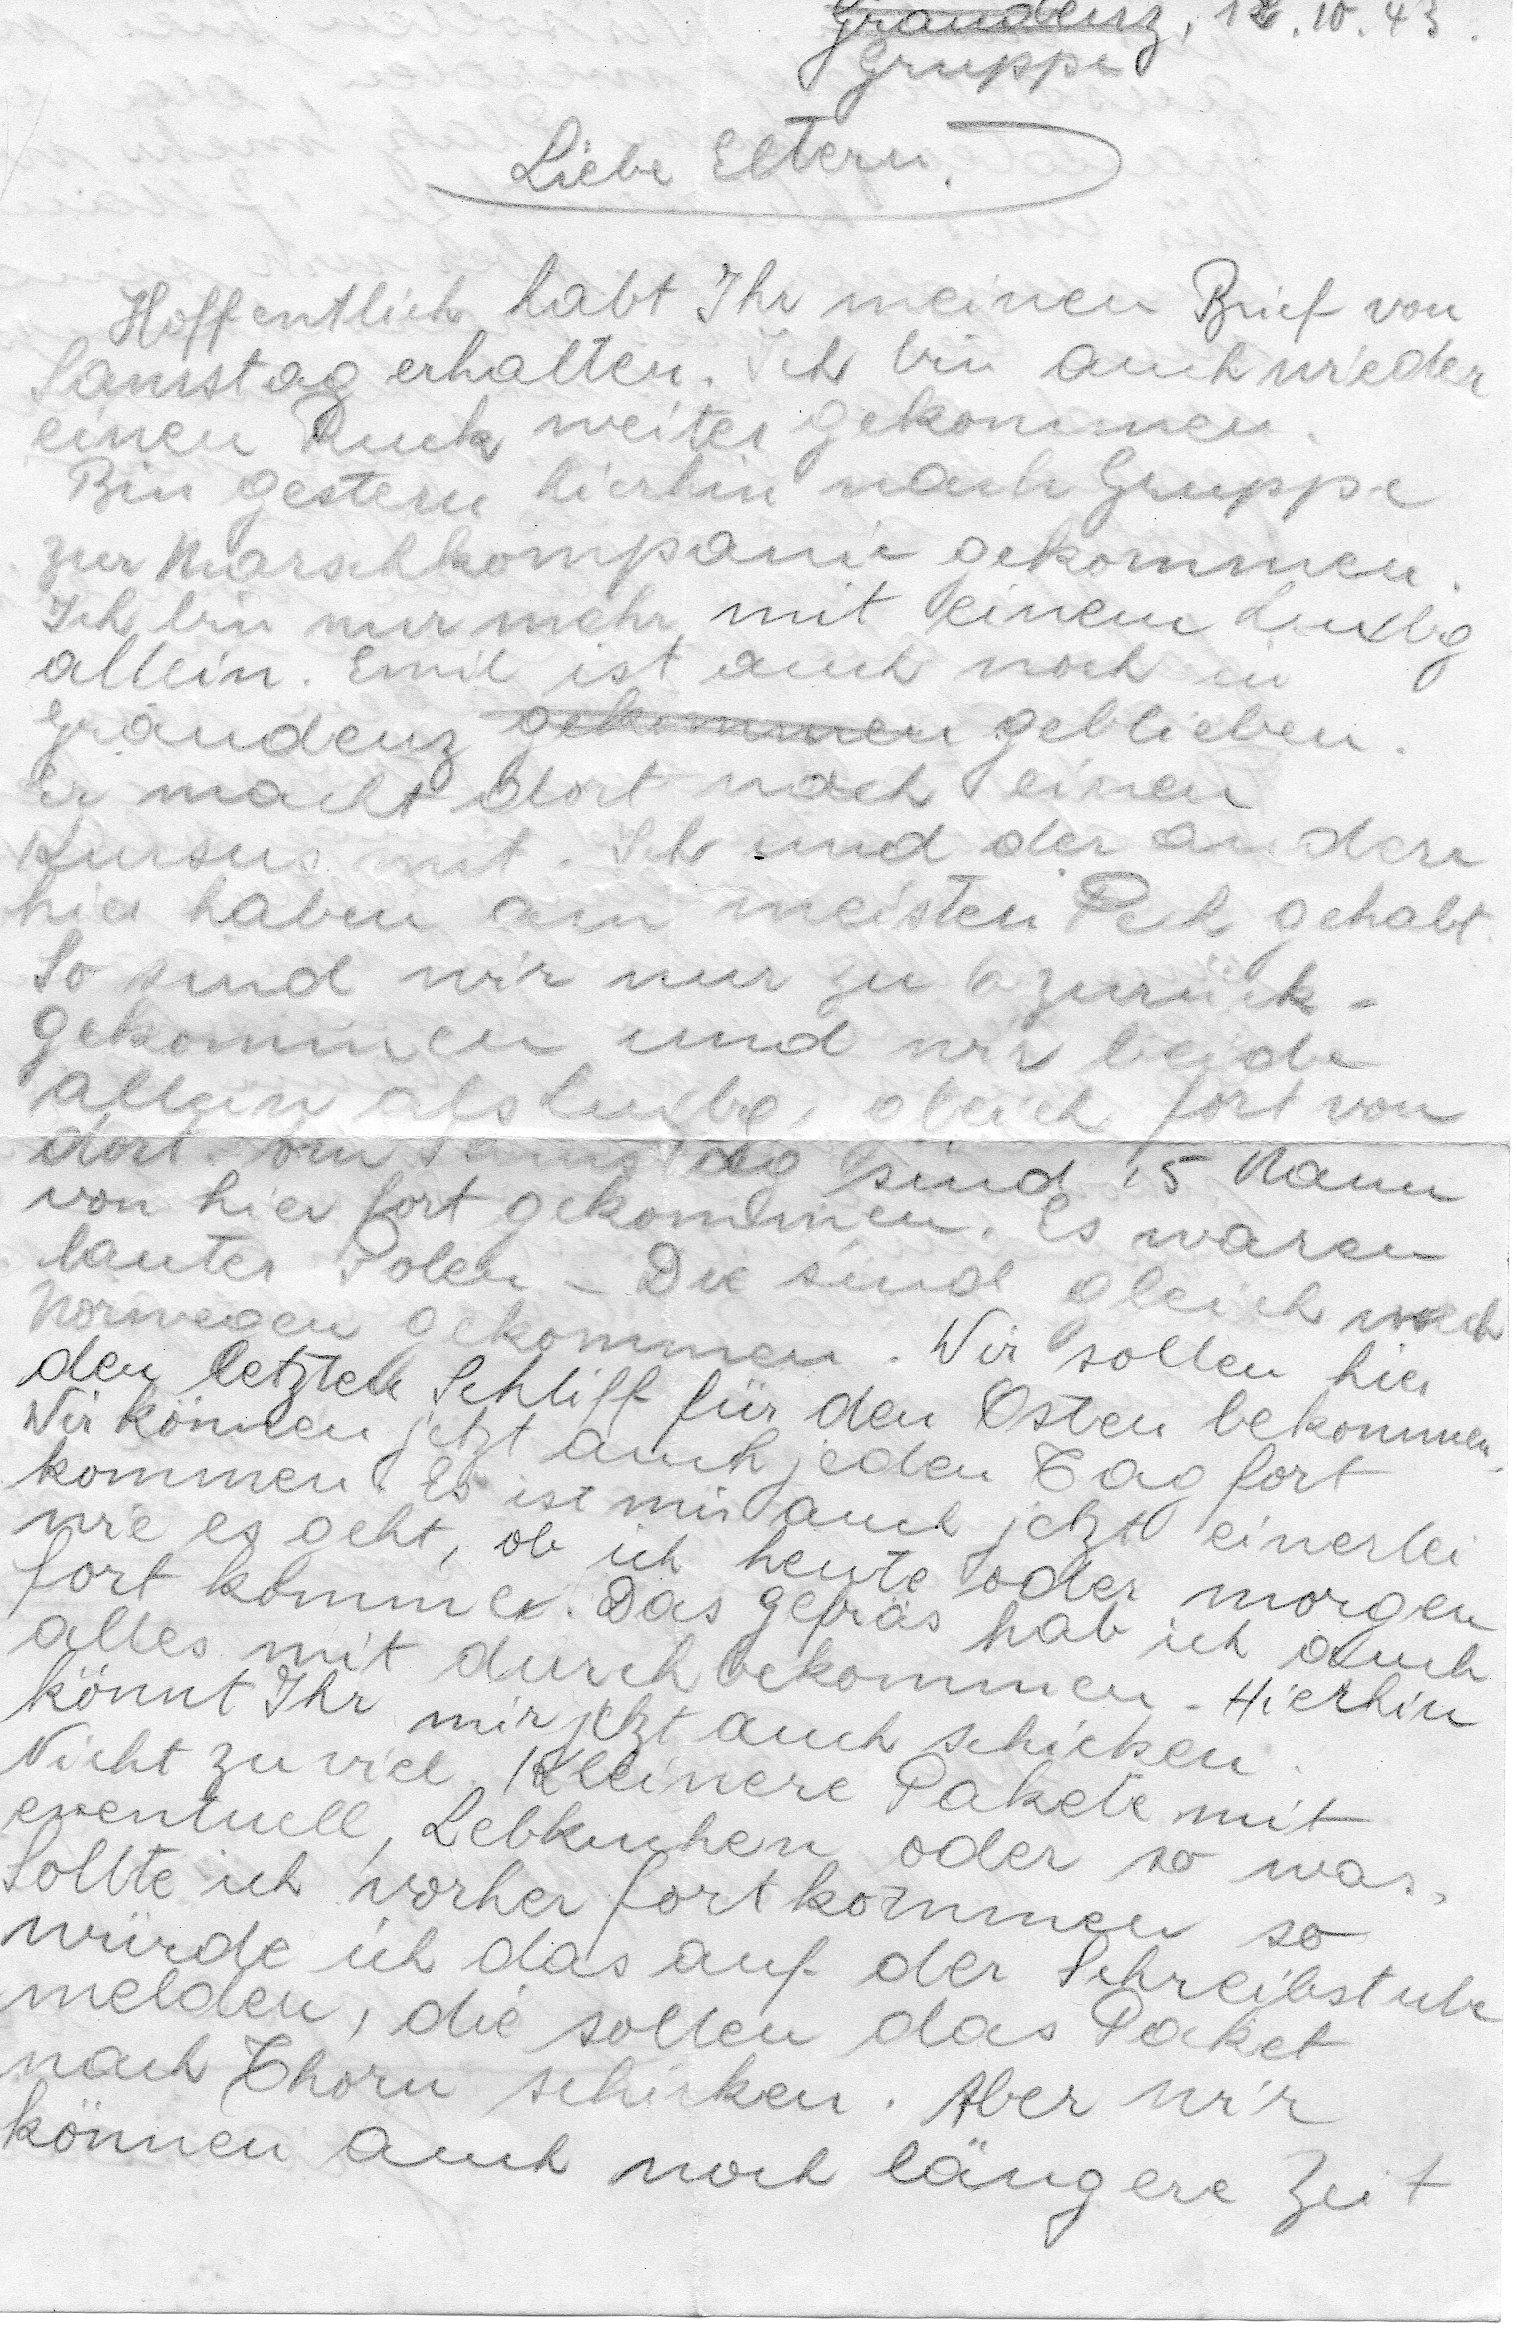 Graudenz, 12.10.43.
Gruppe
Liebe Eltern.
Hoffentlich habt Ihr meinen Brief von
Samstag erhalten. Ich bin auch wieder
einen Ruck weiter gekommen.
Bin gestern hierhin nach Gruppe
zur Marschkompanie gekommen.
Ich bin nur mehr mit einem Luxbg
allein. Emil ist auch noch in
Graudenz gekommen geblieben.
Er macht dort noch einen
Kursus mit. Ich und der andere
hier haben am meisten Pech gehabt.
So sind wir nur zu 6 zurück-
gekommen und wir beide
allein als Luxbg. gleich fort von
dort. Am Samstag sind 15 Mann
von hier fort gekommen. Es waren
lauter Polen - Die sind gleich nach
Norwegen gekommen. Wir sollen hier
den letzten Schliff für den Osten bekommen.
Wir können jetzt auch jeden Tag fort
kommen. Es ist mir auch jetzt einerlei
wie es geht, ob ich heute oder morgen
fort komme. Das gefräs hab ich auch
alles mit durch bekommen. Hierhin
könnt Ihr mir jetzt auch schicken.
Nicht zu viel. Kleinere Pakete mit
eventuell, Lebkuchen oder so was,
Sollte ich vorher fort kommen so
würde ich das auf der Schreibstube
melden, die sollen das Paket
nach Thorn schicken. Aber wir
können auch noch längere Zeit